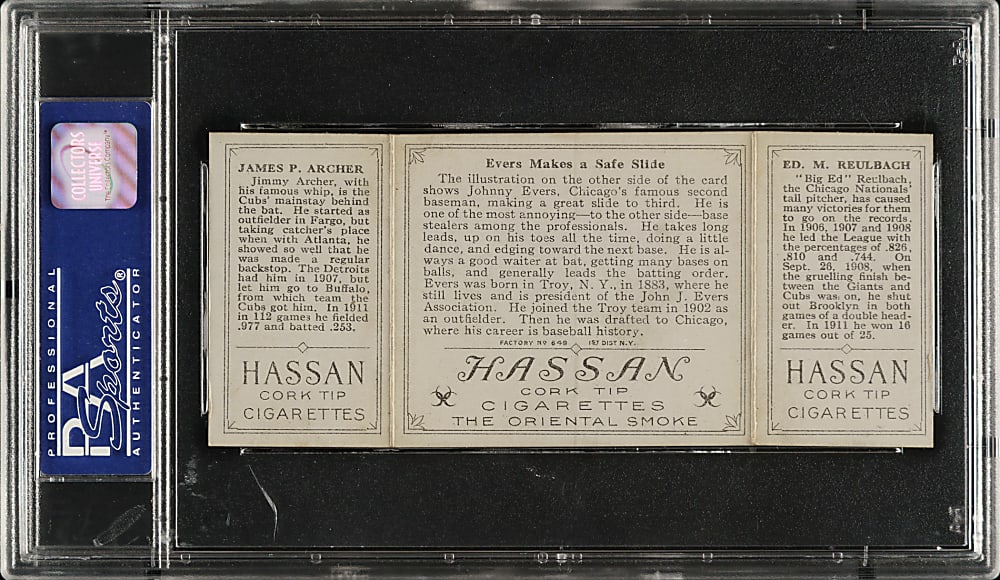 COLLECTORS
UNIVERSE
PROFESSIONAL
PSA
Sports®
AUTHENTICATOR
JAMES P. ARCHER
Jimmy Archer, with
his famous whip, is the
Cubs' mainstay behind
the bat. He started as
outfielder in Fargo, but
taking catcher's place
when with Atlanta, he
showed so well that he
was made a regular
backstop. The Detroits
had him in 1907, but
let him go to Buffalo,
from which team the
Cubs got him. In 1911
in 112 games he fielded
.977 and batted .253.
HASSAN
CORK TIP
CIGARETTES
Evers Makes a Safe Slide
The illustration on the other side of the card
shows Johnny Evers, Chicago's famous second
baseman, making a great slide to third. He is
one of the most annoying—to the other side—base
stealers among the professionals. He takes long
leads, up on his toes all the time, doing a little
dance, and edging toward the next base. He is al-
ways a good waiter at bat, getting many bases on
balls, and generally leads the batting order.
Evers was born in Troy, N. Y., in 1883, where he
still lives and is president of the John J. Evers
Association. He joined the Troy team in 1902 as
an outfielder. Then he was drafted to Chicago,
where his career is baseball history.
FACTORY Nº 649 1ST DIST N.Y.
HASSAN
CORK TIP
CIGARETTES
THE ORIENTAL SMOKE
ED. M. REULBACH
"Big Ed" Reulbach,
the Chicago Nationals'
tall pitcher, has caused
many victories for them
to go on the records.
In 1906, 1907 and 1908
he led the League with
the percentages of .826,
.810 and .744. On
Sept. 26, 1908, when
the gruelling finish be-
tween the Giants and
Cubs was on, he shut
out Brooklyn in both
games of a double head-
er. In 1911 he won 16
games out of 25.
HASSAN
CORK TIP
CIGARETTES